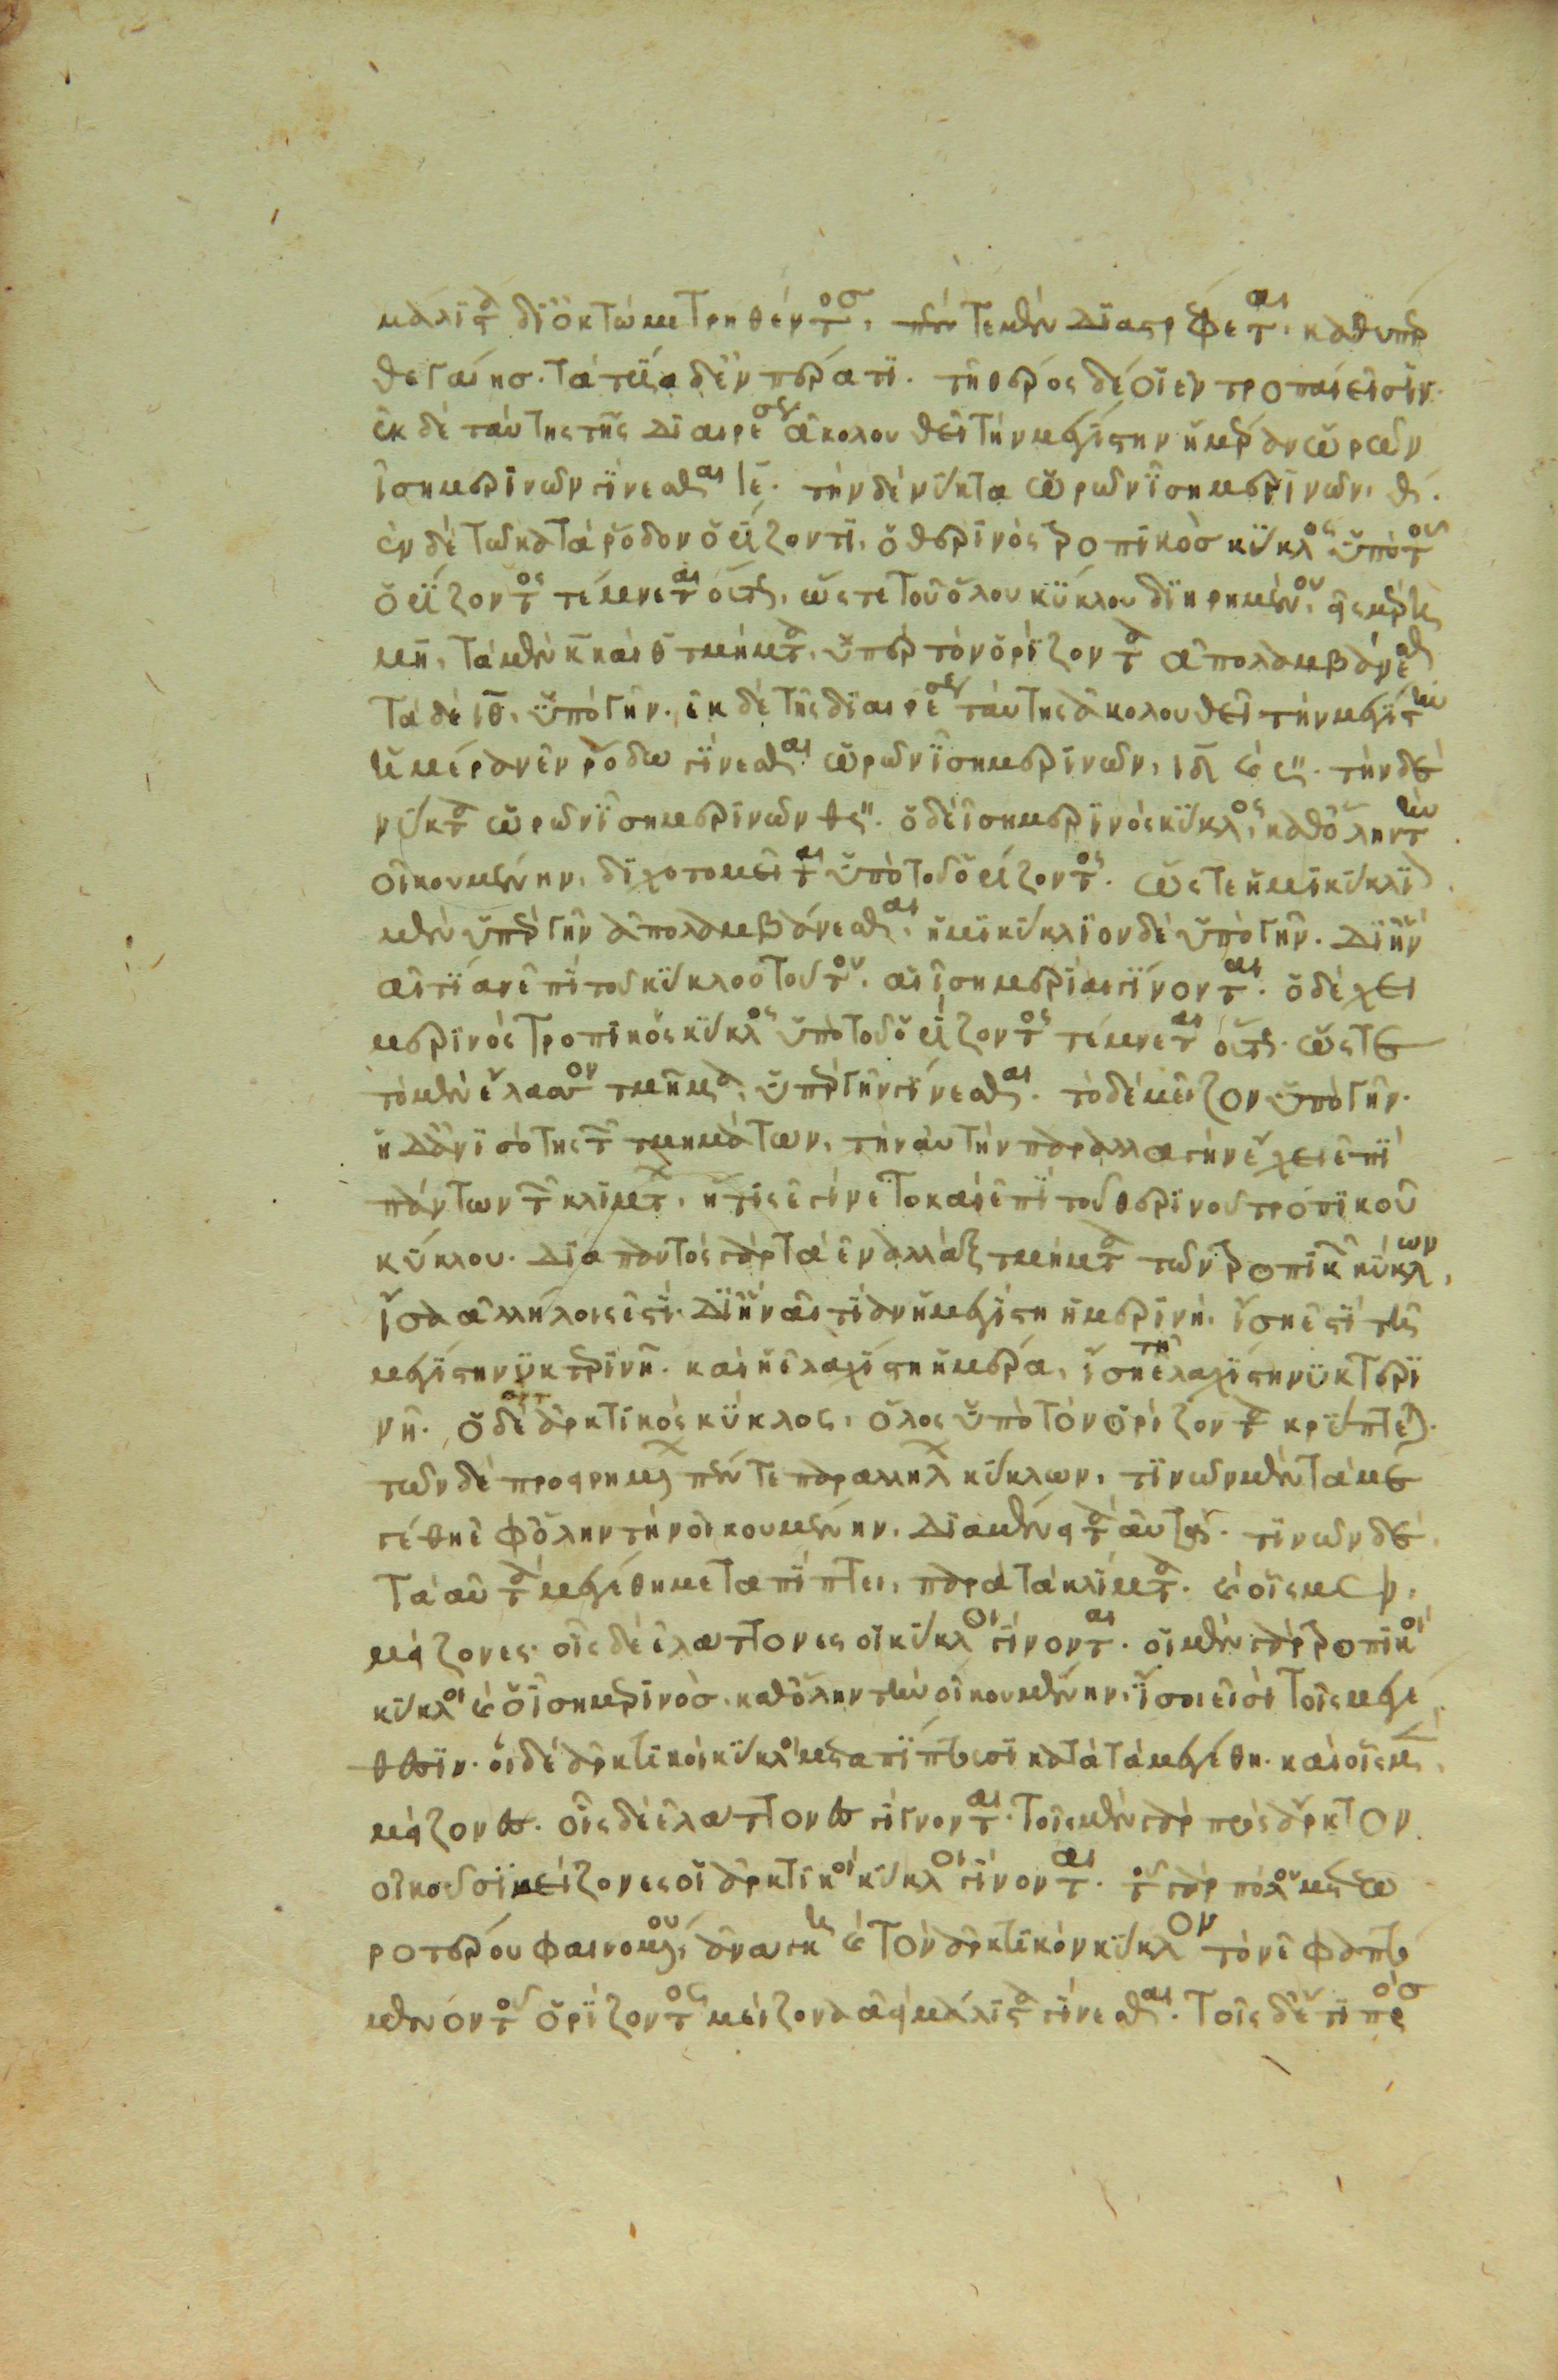 μάλιστα δι' ὀκτὼ μετρηθέντος, πέντε μὲν διαστρέφεται καθ' ὑπὲρ
θε γαίης. τὰ τρία δ' ἐν περάτῃ. τῇ θέρος δέ οἱ ἐν τροπαί εἰσιν.
ἐκ δὲ ταύτης τῆς διαιρέσεως ἀκολουθεῖ τὴν μεγίστην ἡμέραν ὡρῶν
ἰσημερινῶν γίνεσθαι ιε. τὴν δὲ νύκτα ὡρῶν ἰσημερινῶν, θ.
ἐν δὲ τῷ κατὰ ῥόδον ὁρίζοντι, ὁ θερινὸς τροπικὸς κύκλος ὑπὸ τοῦ
ὁρίζοντος τέμνεται οὕτως, ὥστε τοῦ ὅλου κύκλου διῃρημένου εἰς μέρη
μη, τὰ μὲν κ καὶ θ τμήματα ὑπὲρ τὸν ὁρίζοντα ἀπολαμβάνεσθαι
τὰ δὲ ιθ, ὑπὸ γῆν. ἐκ δὲ τῆς διαιρέσεως ταύτης ἀκολουθεῖ τὴν μεγίστην
ἡμέραν ἐν ῥόδῳ γίνεσθαι ὡρῶν ἰσημερινῶν, ιδ καὶ ς". τὴν δὲ
νύκτα ὡρῶν ἰσημερινῶν θς". ὁ δὲ ἰσημερινὸς κύκλος, καθ' ὅλην τὴν
οἰκουμένην, διχοτομεῖται ὑπὸ τοῦ ὁρίζοντος. ὥστε ἡμικύκλιον
μὲν ὑπὲρ γῆν ἀπολαμβάνεσθαι, ἡμικύκλιον δὲ ὑπὸ γῆν. δι' ἣν
αἰτίαν ἐπὶ τοῦ κύκλου τούτου, αἱ ἰσημερίαι γίνονται. ὁ δὲ χει
μερινὸς τροπικὸς κύκλος ὑπὸ τοῦ ὁρίζοντος τέμνεται οὕτως. ὥστε
τὸ μὲν ἔλασσον τμῆμα, ὑπὲρ γῆν γίνεσθαι. τὸ δὲ μεῖζον ὑπὸ γῆν.
ἡ δ' ἀνισότης τῶν τμημάτων, τὴν αὐτὴν παραλλαγὴν ἔχει ἐπὶ
πάντων τῶν κλιμάτων, ἥτις ἐγίνετο καὶ ἐπὶ τοῦ θερινοῦ τροπικοῦ
κύκλου. διὰ παντὸς γὰρ τὰ ἐναλλὰξ τμήματα τῶν τροπικῶν κύκλων,
ἴσα ἀλλήλοις ἐστί. δι' ἣν αἰτίαν ἡ μεγίστη ἡμερινὴ, ἴση ἐστὶ τῇ
μεγίστῃ νυκτερινῇ. καὶ ἡ ἐλαχίστη ἡμέρα, ἴση τῇ ἐλαχίστῃ νυκτερι
νῇ. ὁ δὲ ἀρκτικὸς κύκλος, ὅλος ὑπὸ τὸν ὁρίζοντα κρύπτεται.
τῶν δὲ προειρημένων πέντε παραλλήλων κύκλων, τινῶν μὲν τὰ με
γέθη ἐφ' ὅλην τὴν οἰκουμένην, διαμένει τὰ αὐτά. τινῶν δὲ
τὰ αὐτὰ μεγέθη μεταπίπτει, παρὰ τὰ κλίματα. καὶ οἷς μὲν,
μείζονες. οἷς δὲ ἐλάττονες οἱ κύκλοι γίνονται. οἱ μὲν γὰρ τροπικοὶ
κύκλοι καὶ ὁ ἰσημερινὸς, καθ' ὅλην τὴν οἰκουμένην, ἴσοι εἰσὶ τοῖς μεγέ
θεσιν. οἱ δὲ ἀρκτικοὶ κύκλοι μεταπίπτουσι κατὰ τὰ μεγέθη. καὶ οἷς μὲν,
μείζονες. οἷς δὲ ἐλάττονες γίγνονται. τοῖς μὲν γὰρ πρὸς ἄρκτον
οἰκοῦσι μείζονες οἱ ἀρκτικοὶ κύκλοι γίνονται. τοῦ γὰρ πόλου μετεω
ροτέρου φαινομένου, ἀνάγκη καὶ τὸν ἀρκτικὸν κύκλον τὸν ἐφαπτό
μενον τοῦ ὁρίζοντος μείζονα ἀεὶ μάλιστα γίνεσθαι. τοῖς δ' ἔτι πρὸς